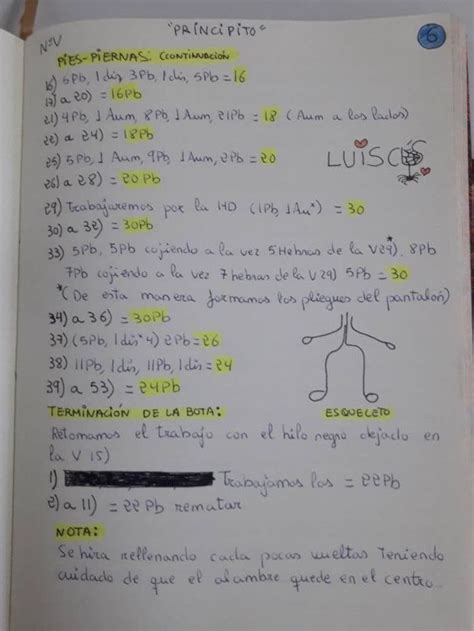 "PRINCIPITO"
6
N=V
PIES-PIERNAS: (CONTINUACIÓN
16) 5Pb, 1 dis, 3Pb, 1 dis, 5Pb = 16
17) a 20) = 16Pb
21) 4Pb, 1 Aum, 8Pb, 1 Aum, 21Pb = 18 (Aum a los lados)
22) a 24) = 18Pb
25) 5Pb, 1 Aum, 9Pb, 1 Aum, 2Pb = 20
LUISCÓS
26) a 28) = 20Pb
29) Trabajaremos por la HD (1Pb, 1Au*) = 30
30) a 32) = 30Pb
33) 5Pb, 5Pb cojiendo a la vez 5 Hebras de la V29), 8Pb
7Pb cojiendo a la vez 7 hebras de la V29) 5Pb = 30
*(De esta manera formamos los pliegues del pantalón)
34) a 36) = 30Pb
37) (5Pb, 1 dis * 4) 2Pb = 26
38) 11Pb, 1 dis, 11Pb, 1 dis = 24
39) a 53) = 24Pb
TERMINACIÓN DE LA BOTA:
ESQUELETO
Retomamos el trabajo con el hilo negro dejado en
la V 15)
1) Trabajamos los = 22Pb
2) a 11) = 22Pb rematar
NOTA:
Se hira rellenando cada pocas vueltas Teniendo
cuidado de que el alambre quede en el centro.